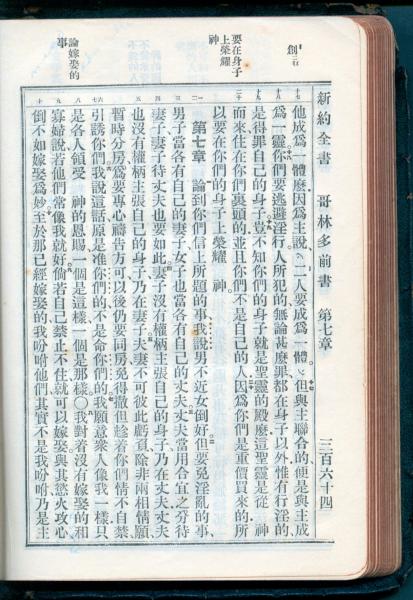 新約全書 哥林多前書 第七章 三百六十四
創二章
要在身子
上榮耀
神
論嫁娶的
事
他成爲一體麼因爲主說二人要成爲一體但與主聯合的便是與主成
爲一靈你們要逃避淫行人所犯的無論甚麼罪都在身子以外惟有行淫的
是得罪自己的身子豈不知你們的身子就是聖靈的殿麼這聖靈是從 神
而來住在你們裏頭的並且你們不是自己的人因爲你們是重價買來的所
以要在你們的身子上榮耀 神
第七章 論到你們信上所題的事我說男不近女倒好但要免淫亂的事
男子當各有自己的妻子女子也當各有自己的丈夫丈夫當用合宜之分待
妻子妻子待丈夫也要如此妻子沒有權柄主張自己的身子乃在丈夫丈夫
也沒有權柄主張自己的身子乃在妻子夫妻不可彼此虧負除非兩相情願
暫時分房爲要專心禱告方可以後仍要同房免得撒但趁着你們情不自禁
引誘你們我說這話原是准你們的不是命你們的我願意衆人像我一樣只
是各人領受 神的恩賜一個是這樣一個是那樣〇我對着沒有嫁娶的和
寡婦說若他們常像我就好倘若自己禁止不住就可以嫁娶與其慾火攻心
倒不如嫁娶爲妙至於那已經嫁娶的我吩咐他們其實不是我吩咐乃是主